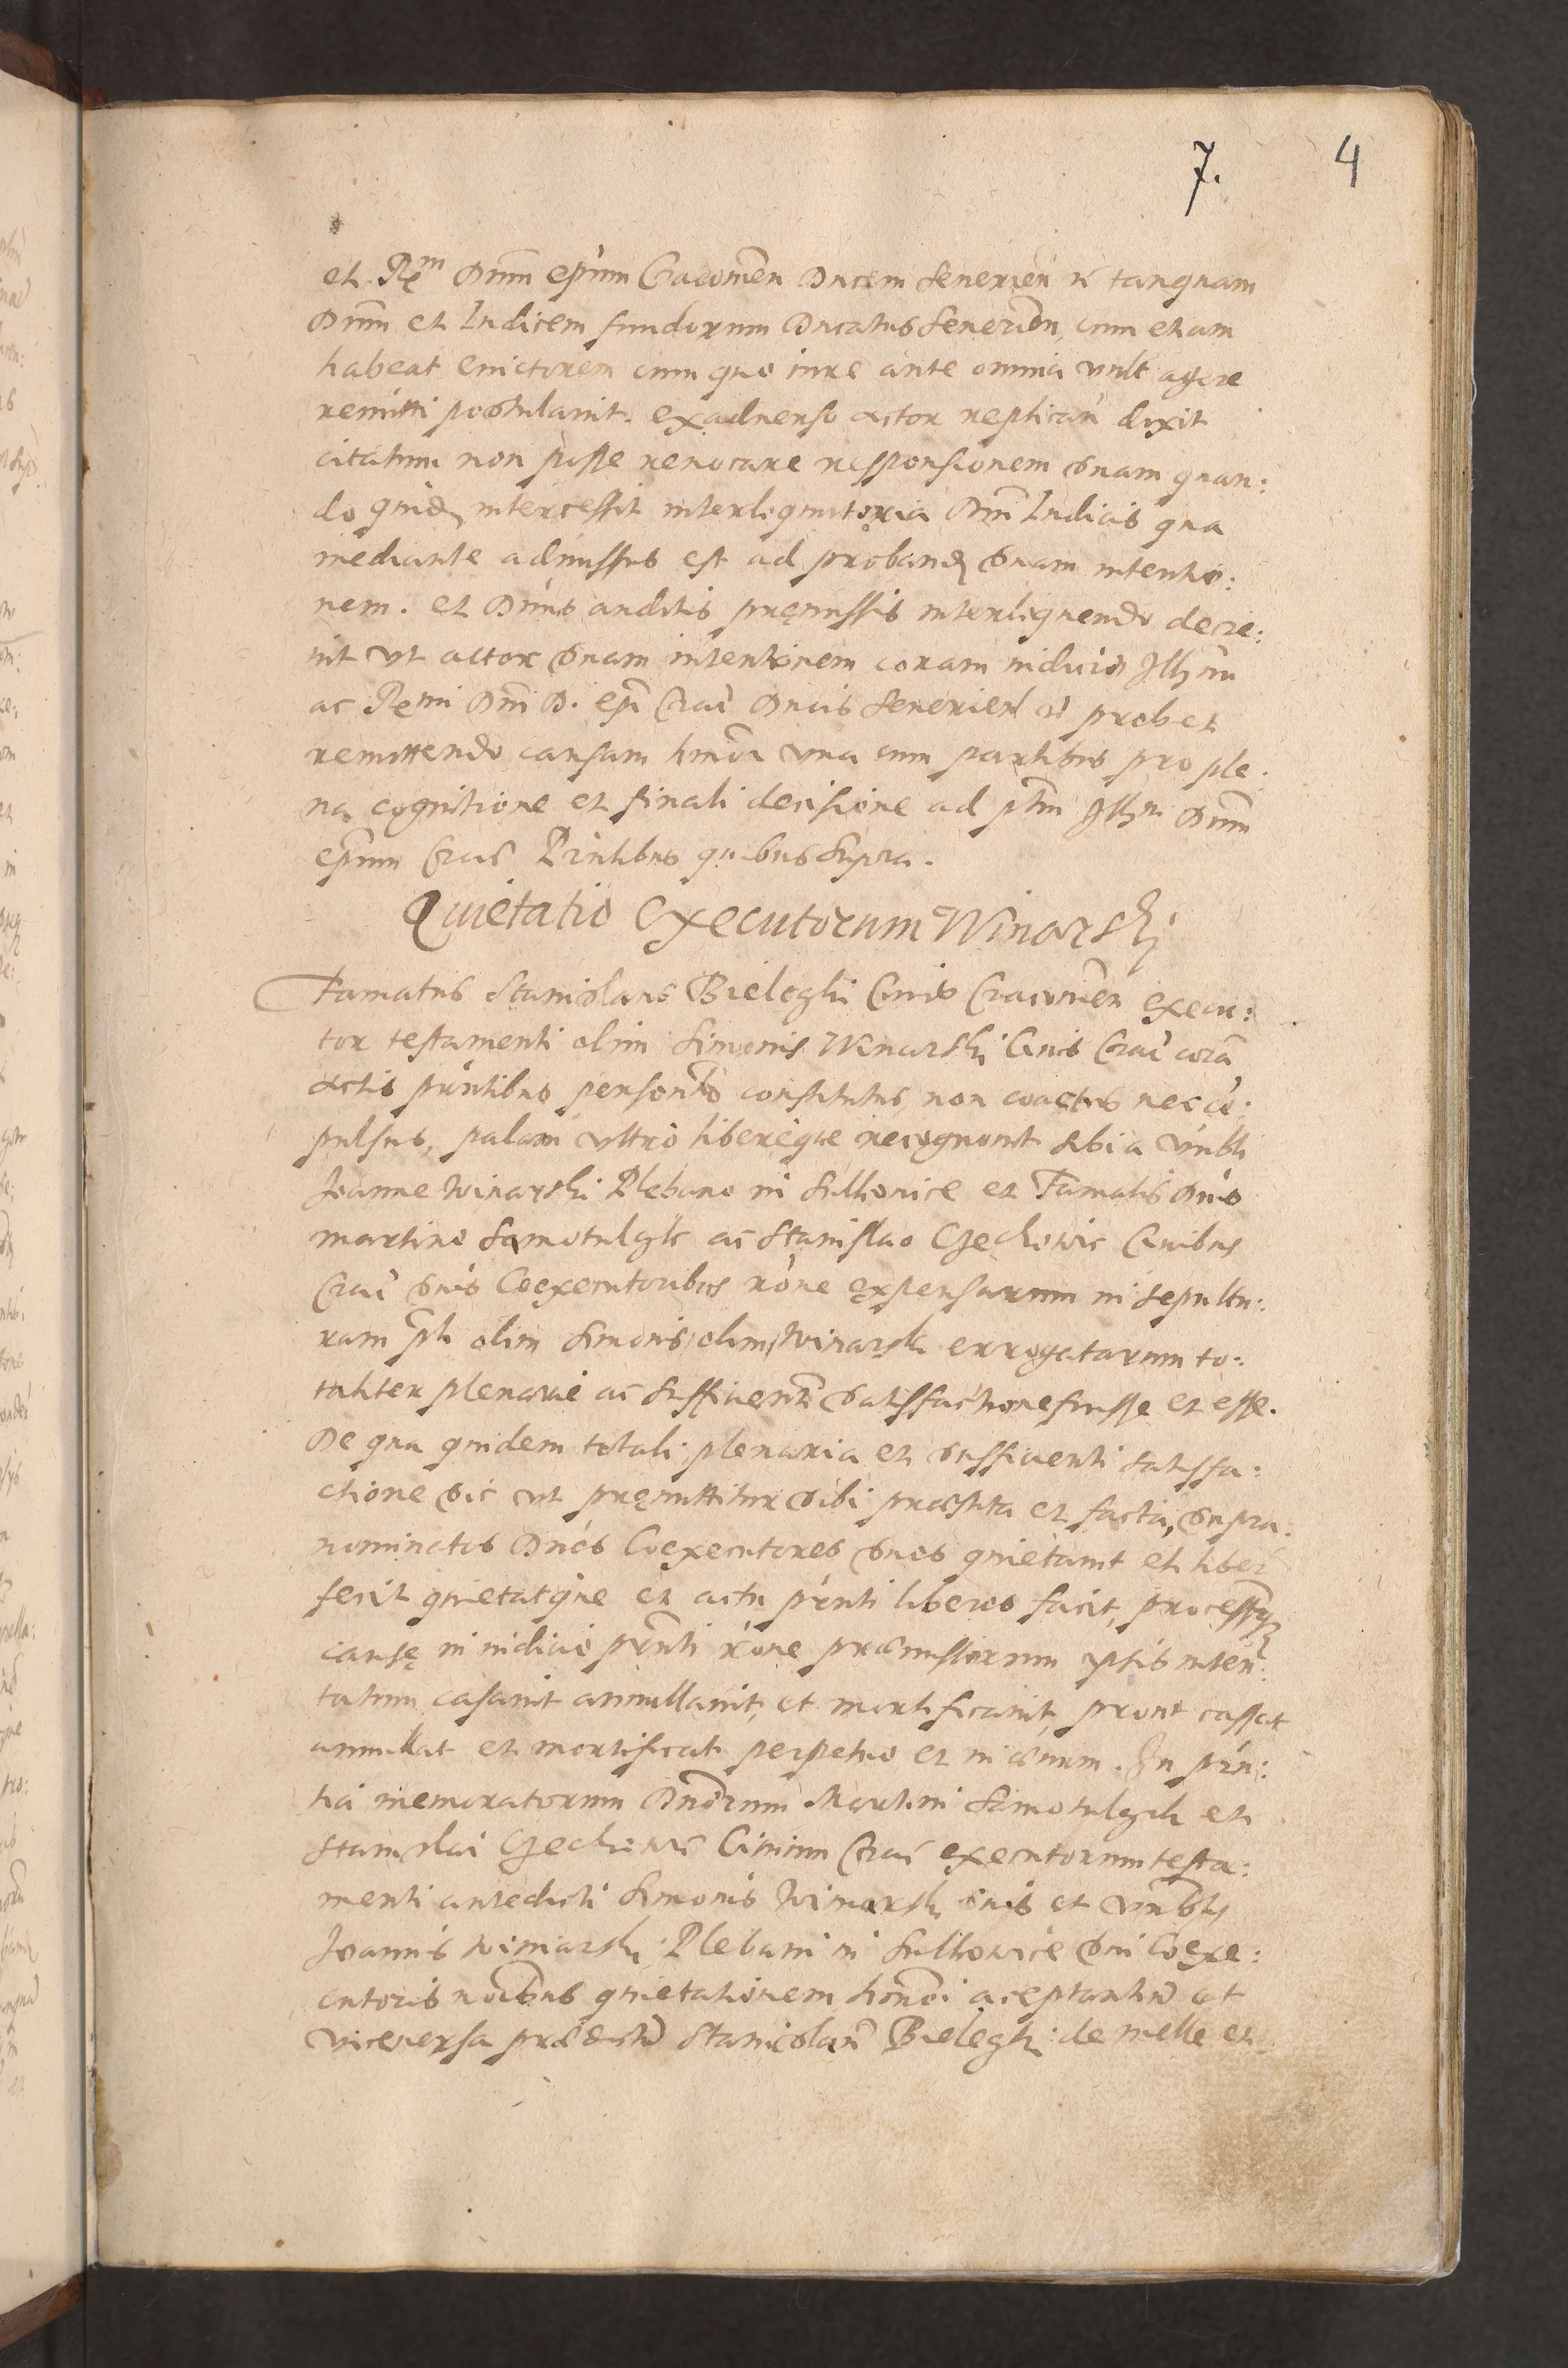 7. 4
et Rm Dnm epum Cracovien Ducem Severien et tanquam
Dnm et Iudicem fundorum Ducatus Severien, cum etiam
habeat evictorem cum quo iure ante omnia vult agere
remitti postulavit. exadverso actor replican dixit
citatum non posse revocare responsionem suam quan:
do quid intercessit interloqutoria Dni Iudicis qua
mediante admissus est ad proband suam intentio:
nem. et Dnus auditis premissis interloquendo decre:
vit vt actor suam intentionem coram iudicio Illmi
ac Rmi Dni D. epi Crac Ducis Severien et probet
remittendo causam hmoi vna cum partibus pro ple.
na cognitione et finali decisione ad ptm Illm Dnm
epum Crac Pntibus quibus supra.
Quietatio executorum Winarski
Famatus Stanislaus Bieleghi Civis Cracovien execu:
tor testamenti olim Simonis Winarski Civis Crac corā
actis pntibus personlr constitutus, non coactus nec cō:
pulsus, palam vltro libereque recognovit sibi a vnbli
Joanne Winarski Plebano in Sulkovice et Famatis Dnis
martino Samotulczik ac Stanislao Czechowic Civibus
Crac suis Coexecutoribus rone expensarum in sepultu:
ram pti olim Simonis olim Winarski errogatarum to:
taliter plenarie ac sufficienti satisfactione fuisse et esse.
De qua quidem totali plenaria et sufficienti satisfa:
ctione sic vt premittitur sibi praestita et facta, supra:
nominatos Dnos Coexecutores suos quietavit et liber
fecit quietatque et actu pnti liberos facit, processum
cause in iudicio pnti rone praemissorum ipsis inten:
tatum casavit annullavit, et mortificavit, prout cassat
annullat et mortificat perpetuo et in aevum. In pren:
tia memoratorum Dnorum Martini Samotulczik et
Stanislai Czechowic Civium Crac executorum testa:
menti antedicti Simonis Winarski suis et vnblis
Joannis Winiarski Plebani in Sulkowice sui Coexe:
cutoris noibus quietationem hmoi aceptantiu et
viceversa praedictu Stanislau Bieleghi de melle et